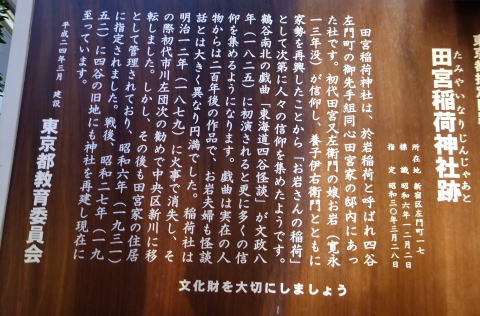 田宮稲荷神社跡
たみやいなりじんじゃあと
所在地 新宿区左門町一七
標識 昭和六年一二月二日
指定 昭和三〇年三月二八日
田宮稲荷神社は、於岩稲荷と呼ばれ四谷
左門町の御先手組同心田宮家の邸内にあっ
た社です。初代田宮又左衛門の娘お岩(寛永
一三年没)が信仰し、養子伊右衛門とともに
家勢を再興したことから「お岩さんの稲荷」
として次第に人々の信仰を集めたようです。
鶴谷南北の戯曲「東海道四谷怪談」が文政八
年(一八二五)に初演されると更に多くの信
仰を集めるようになります。戯曲は実在の人
物からは二百年後の作品で、お岩夫婦も怪談
話とは大きく異なり円満でした。稲荷社は
明治一二年(一八七九)に火事で消失し、そ
の際初代市川左団次の勧めで中央区新川に移
転しました。しかし、その後も田宮家の住居
として管理されており、昭和六年(一九三一)
に指定されました。戦後、昭和二七年(一九
五二)に四谷の旧地にも神社を再建し現在に
至っています。
平成二四年三月 建設
東京都教育委員会
文化財を大切にしましょう